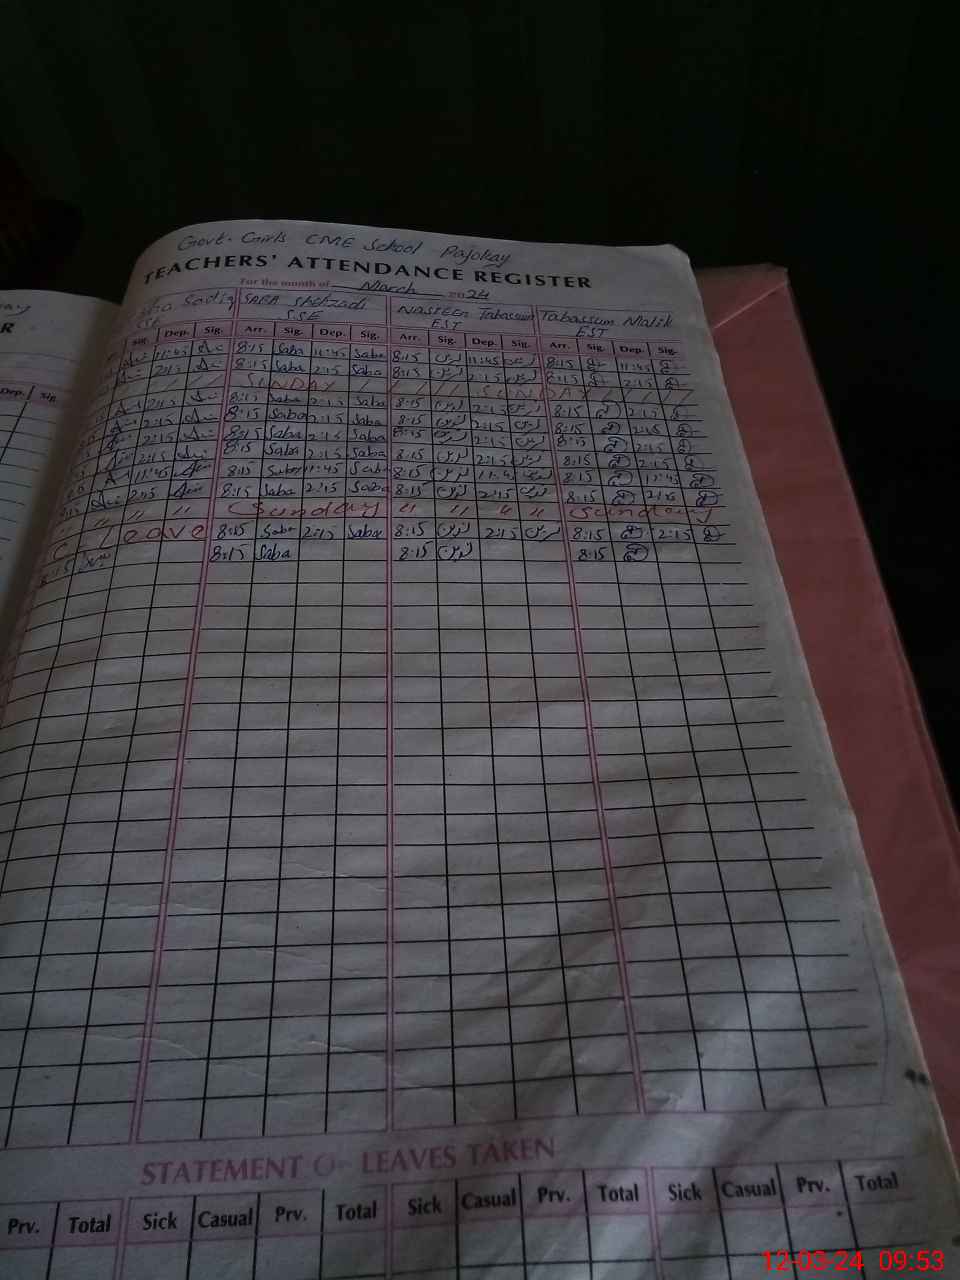 Govt. Girls CME School Pajokay
TEACHERS' ATTENDANCE REGISTER
For the month of March 2024
Sadiq SABA Shehzadi NASREEN Tabassum Tabassum Malik
SSE SSE EST EST
Sig. Dep. Sig. Arr. Sig. Dep. Sig. Arr. Sig. Dep. Sig. Arr. Sig. Dep. Sig.
11:45 8:15 Saba 11:45 Saba 8:15 نسرین 11:45 نسرین 8:15 11:45
2:15 8:15 Saba 2:15 Saba 8:15 نسرین 2:15 نسرین 8:15 2:15
SUNDAY SUNDAY
2:15 8:15 Saba 2:15 Saba 8:15 نسرین 2:15 نسرین 8:15 2:15
2:15 8:15 Saba 2:15 Saba 8:15 نسرین 2:15 نسرین 8:15 2:15
2:15 8:15 Saba 2:15 Saba 8:15 نسرین 2:15 نسرین 8:15 2:15
2:15 8:15 Saba 2:15 Saba 8:15 نسرین 2:15 نسرین 8:15 2:15
11:45 8:15 Saba 11:45 Saba 8:15 نسرین 11:45 نسرین 8:15 11:45
2:15 8:15 Saba 2:15 Saba 8:15 نسرین 2:15 نسرین 8:15 2:15
" " " Sunday " " " " Sunday
C Leave 8:15 Saba 2:15 Saba 8:15 نسرین 2:15 نسرین 8:15 2:15
8:15 8:15 Saba 8:15 نسرین 8:15
STATEMENT O LEAVES TAKEN
Prv. Total Sick Casual Prv. Total Sick Casual Prv. Total Sick Casual Prv. Total
Dep. Sig.
12-03-24 09:53